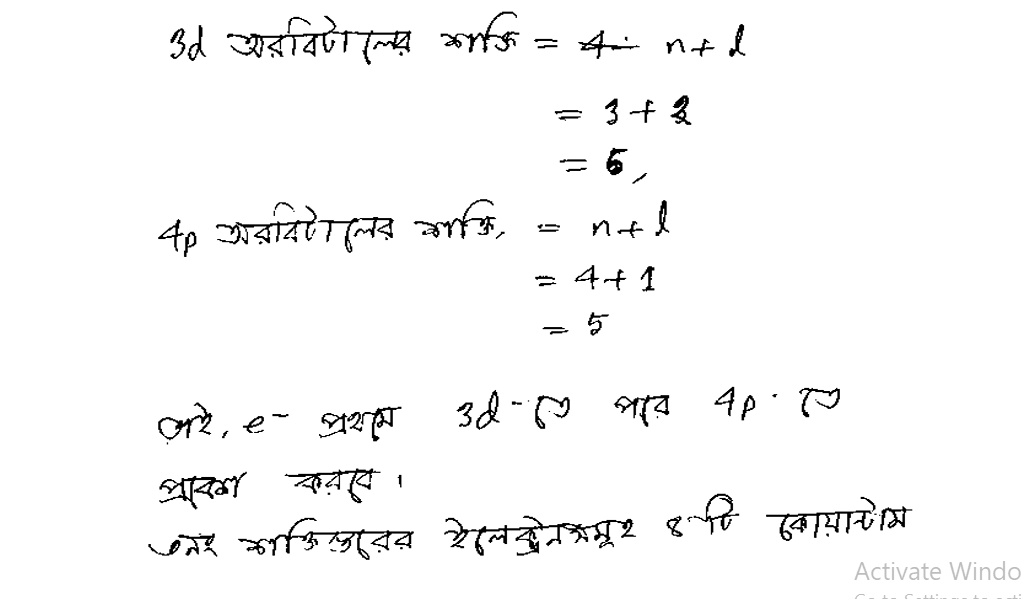 3d অরবিটালের শক্তি = n + l
= 3 + 2
= 5,
4p অরবিটালের শক্তি, = n + l
= 4 + 1
= 5
তাই, e⁻ প্রথমে 3d-তে পরে 4p-তে
প্রবেশ করবে।
৩নং শক্তিস্তরের ইলেকট্রনসমূহ ৪টি কোয়ান্টাম
Activate Windo